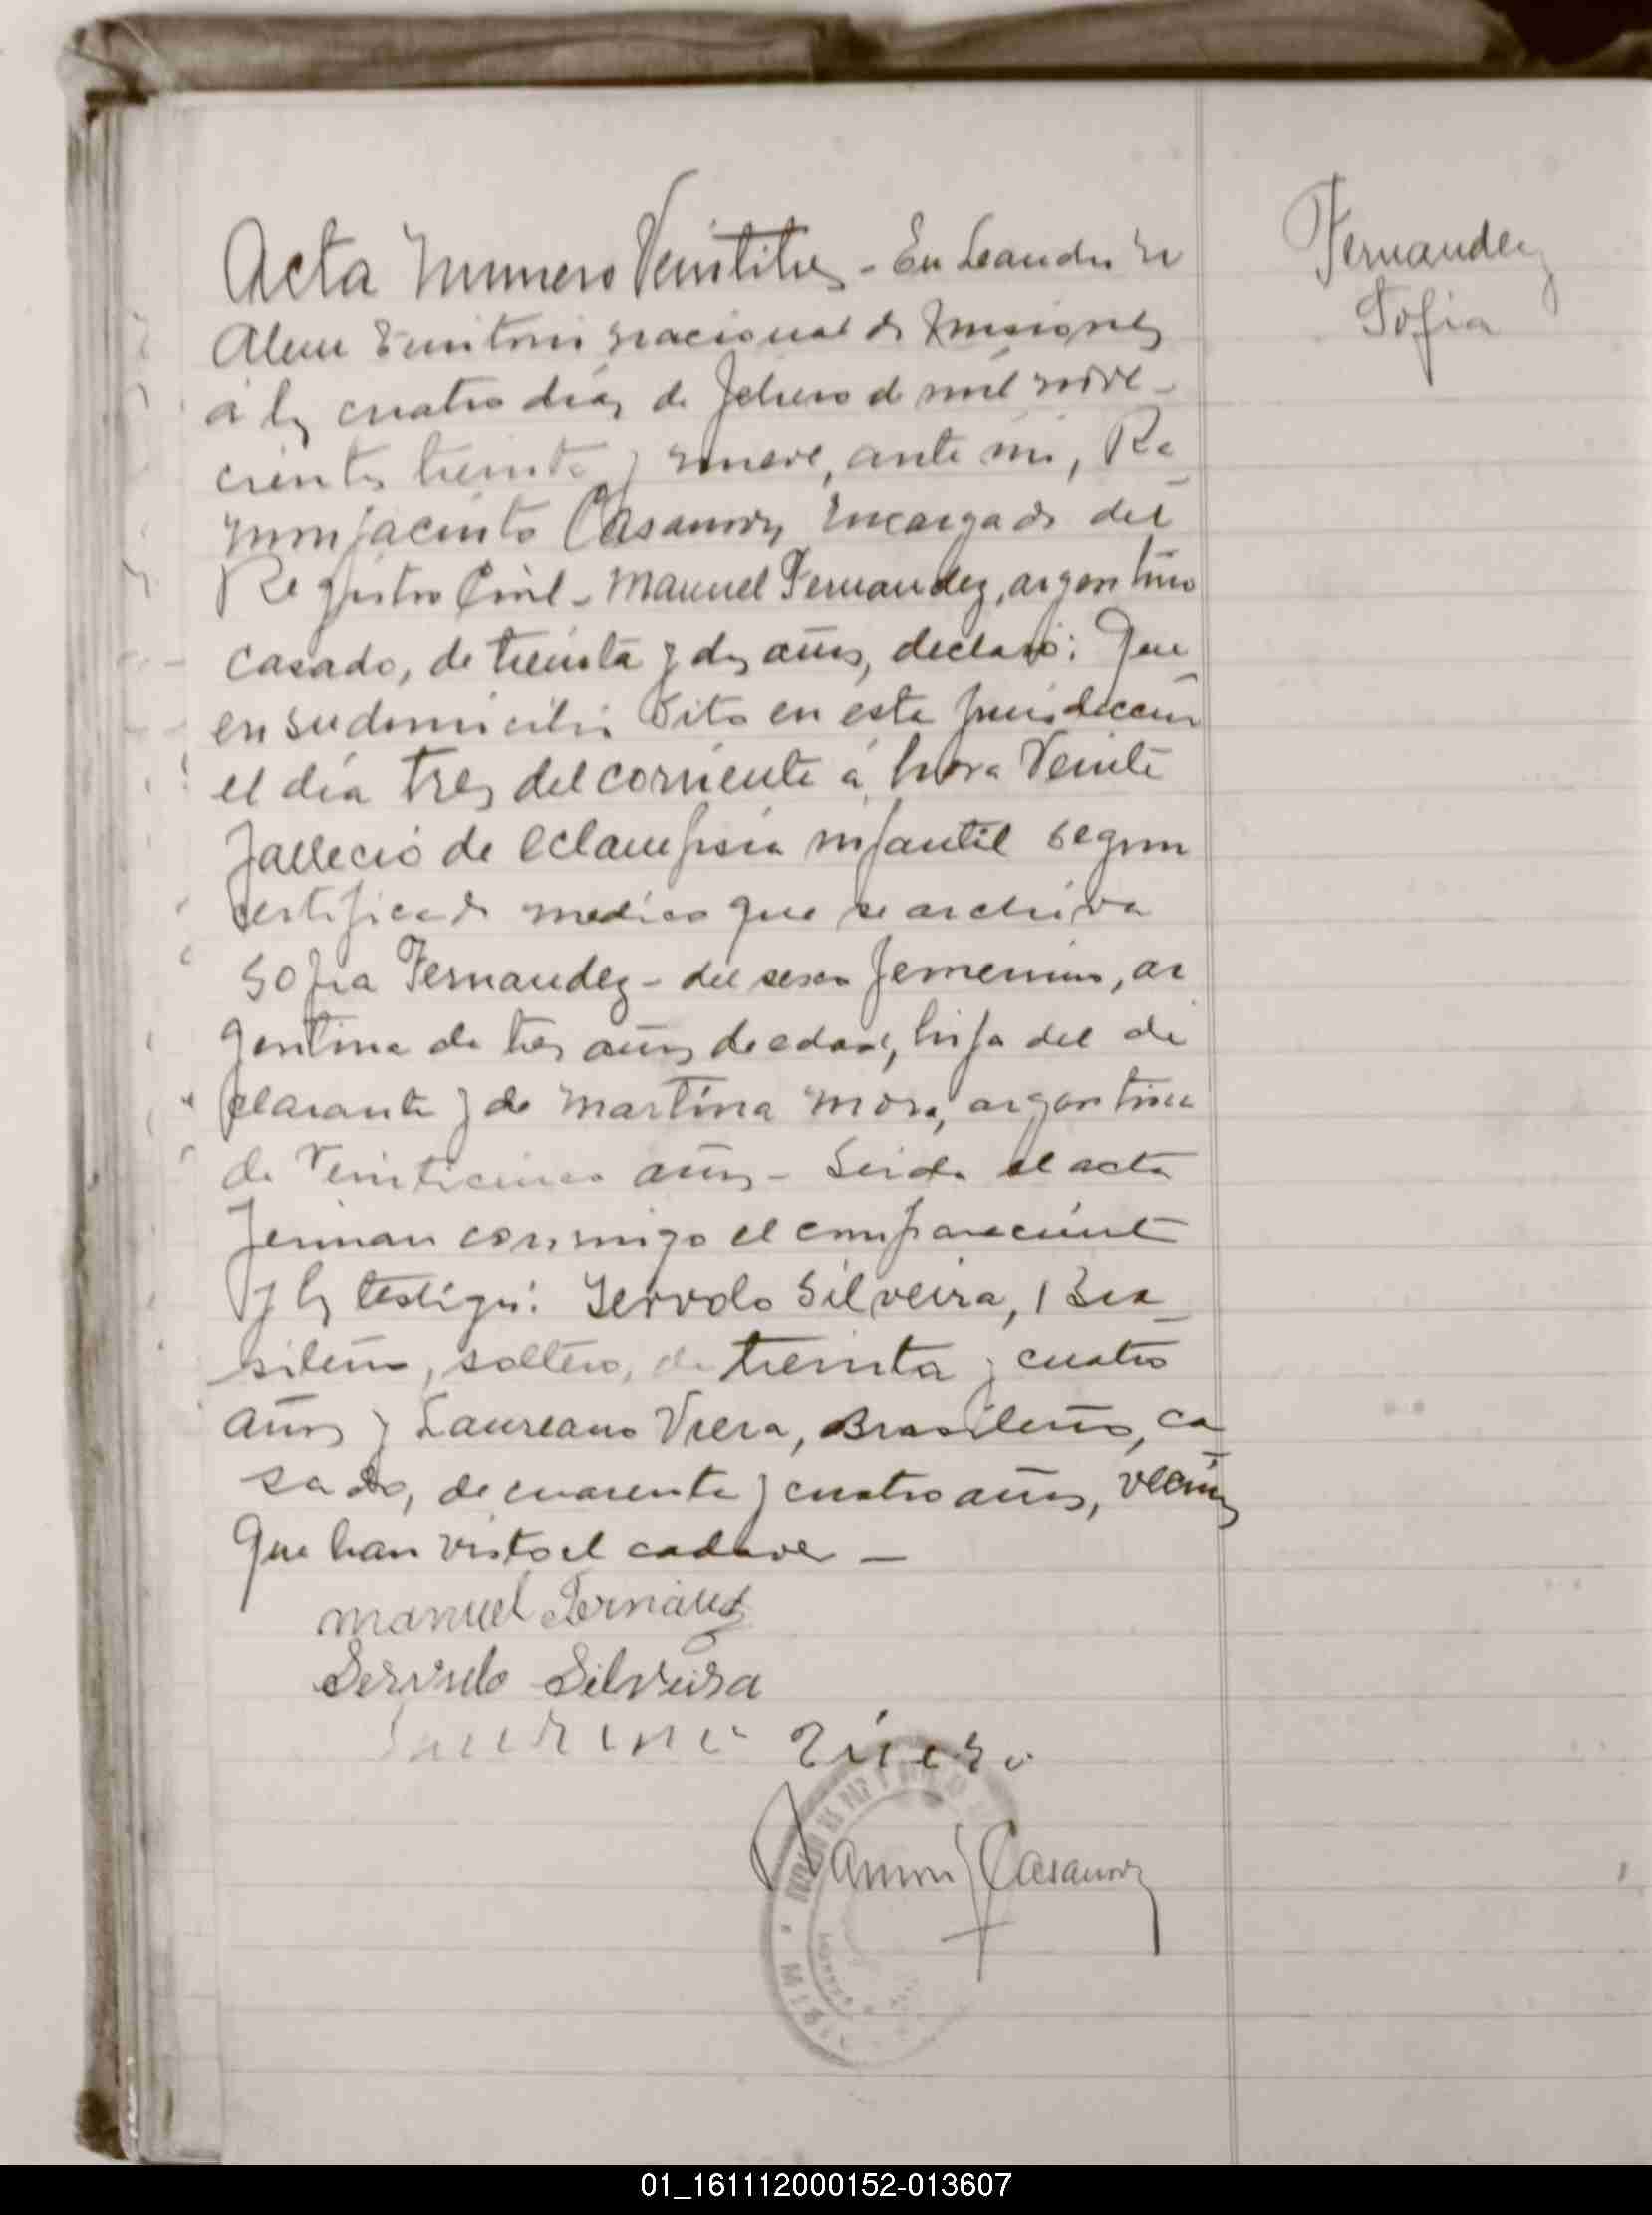 Acta Numero Veintitres - En Leandro N
Alem Territorio Nacional de Misiones
á los cuatro dias de febrero de mil nove-
cientos treinta y nueve, ante mi, Ra
mon Jacinto Casanova, Encargado del
Registro Civil - Manuel Fernandez, argentino
casado, de treinta y dos años, declaró: Que
en su domicilio sito en esta jurisdiccion
el dia tres del corriente á hora veinte
falleció de eclampsia infantil segun
certificado medico que se archiva
Sofia Fernandez - del sexo femenino, ar
gentina de tres años de edad, hija del de
clarante y de Martina Mora, argentina
de veinticinco años - Leida el acta
firman conmigo el compareciente
y los testigos: Servolo Silveira, Bra_
sileño, soltero, de treinta y cuatro
años y Laureano Viera, Brasileño, ca
sado, de cuarenta y cuatro años, vecinos
que han visto el cadaver -
Manuel Fernandz
Servulo Silveira
Ramon J Casanova
Fernandez
Sofia
01_161112000152-013607